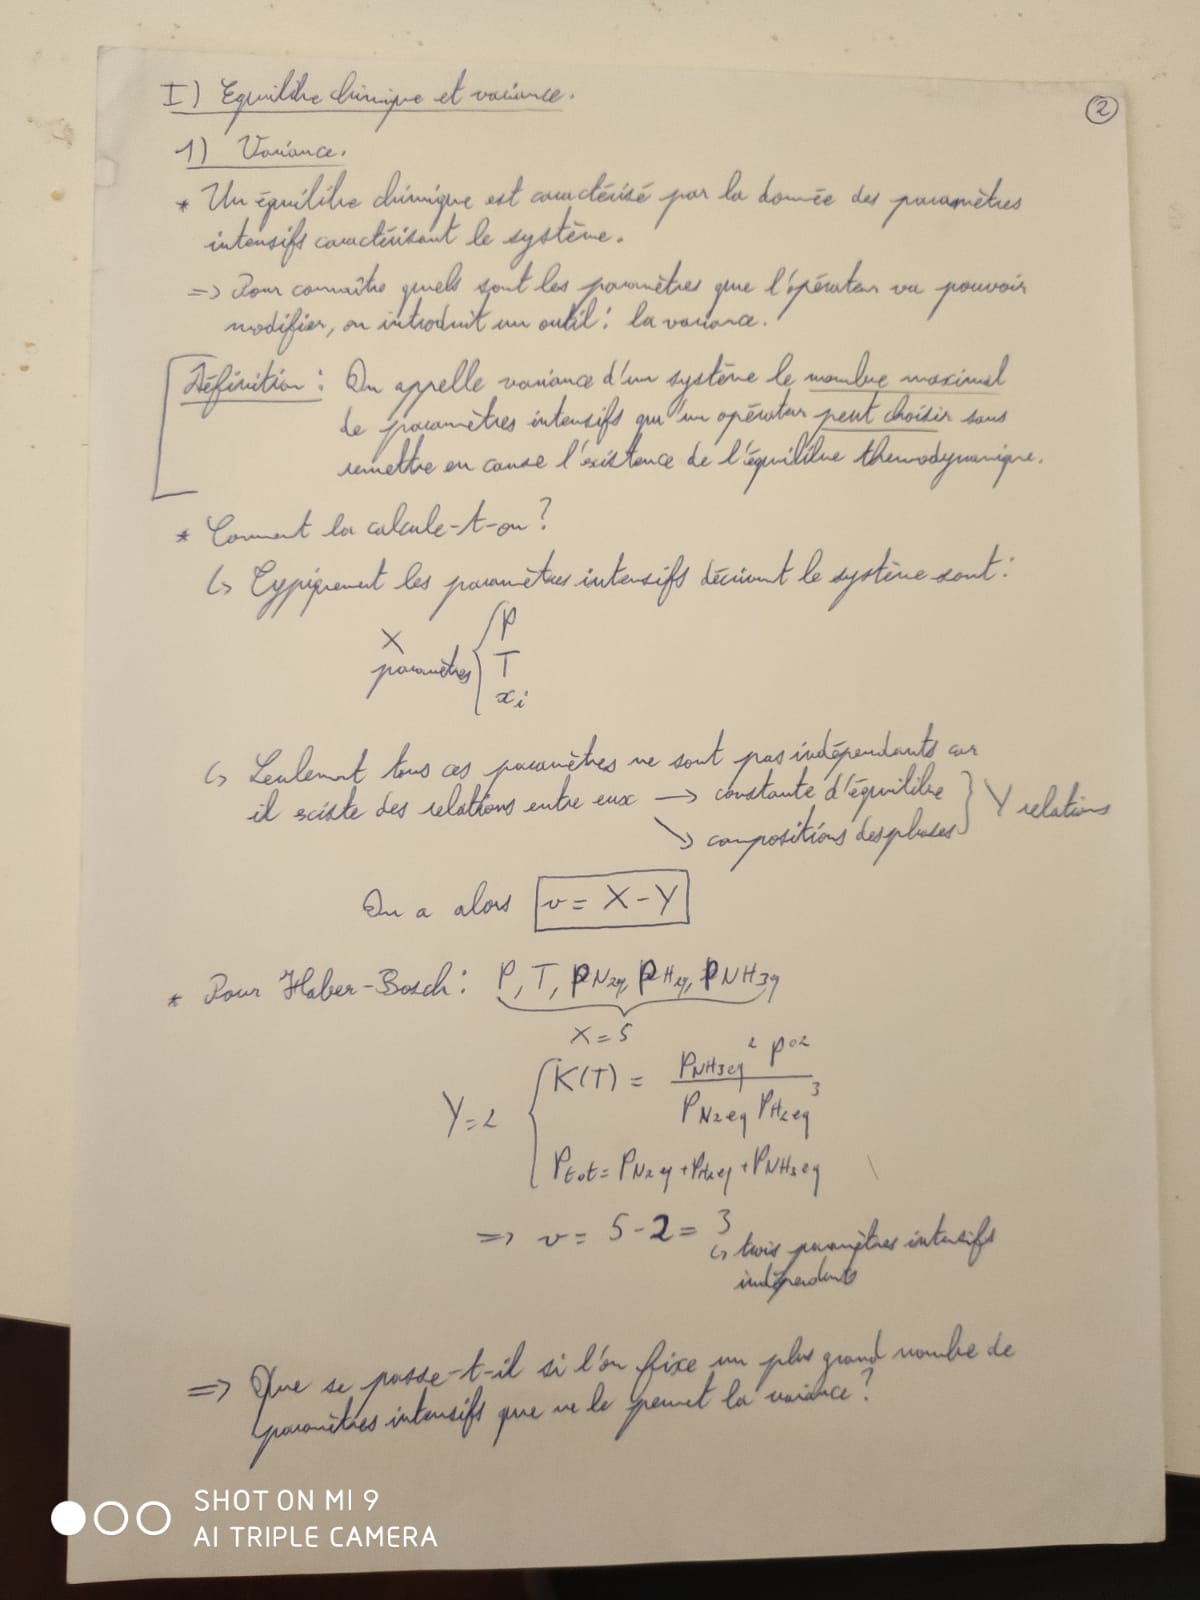 I) Equilibre chimique et variance.
②
1) Variance.
* Un équilibre chimique est caractérisé par la donnée des paramètres
intensifs caractérisant le système.
=> Pour connaître quels sont les paramètres que l'opérateur va pouvoir
modifier, on introduit un outil : la variance.
Définition : On appelle variance d'un système le nombre maximal
de paramètres intensifs qu'un opérateur peut choisir sans
remettre en cause l'existence de l'équilibre thermodynamique.
* Comment la calcule-t-on ?
↳ Typiquement les paramètres intensifs décrivant le système sont :
X paramètres { P
T
xi
↳ Seulement tous ces paramètres ne sont pas indépendants car
il existe des relations entre eux → constante d'équilibre
↘ compositions des phases } Y relations
On a alors v = X - Y
* Pour Haber-Bosch : P, T, PN2eq, PH2eq, PNH3eq
X = 5
Y = 2 { K(T) = PNH3eq² P°² / PN2eq PH2eq³
Ptot = PN2eq + PH2eq + PNH3eq
=> v = 5 - 2 = 3
↳ trois paramètres intensifs
indépendants
=> Que se passe-t-il si l'on fixe un plus grand nombre de
paramètres intensifs que ne le permet la variance ?
SHOT ON MI 9
AI TRIPLE CAMERA